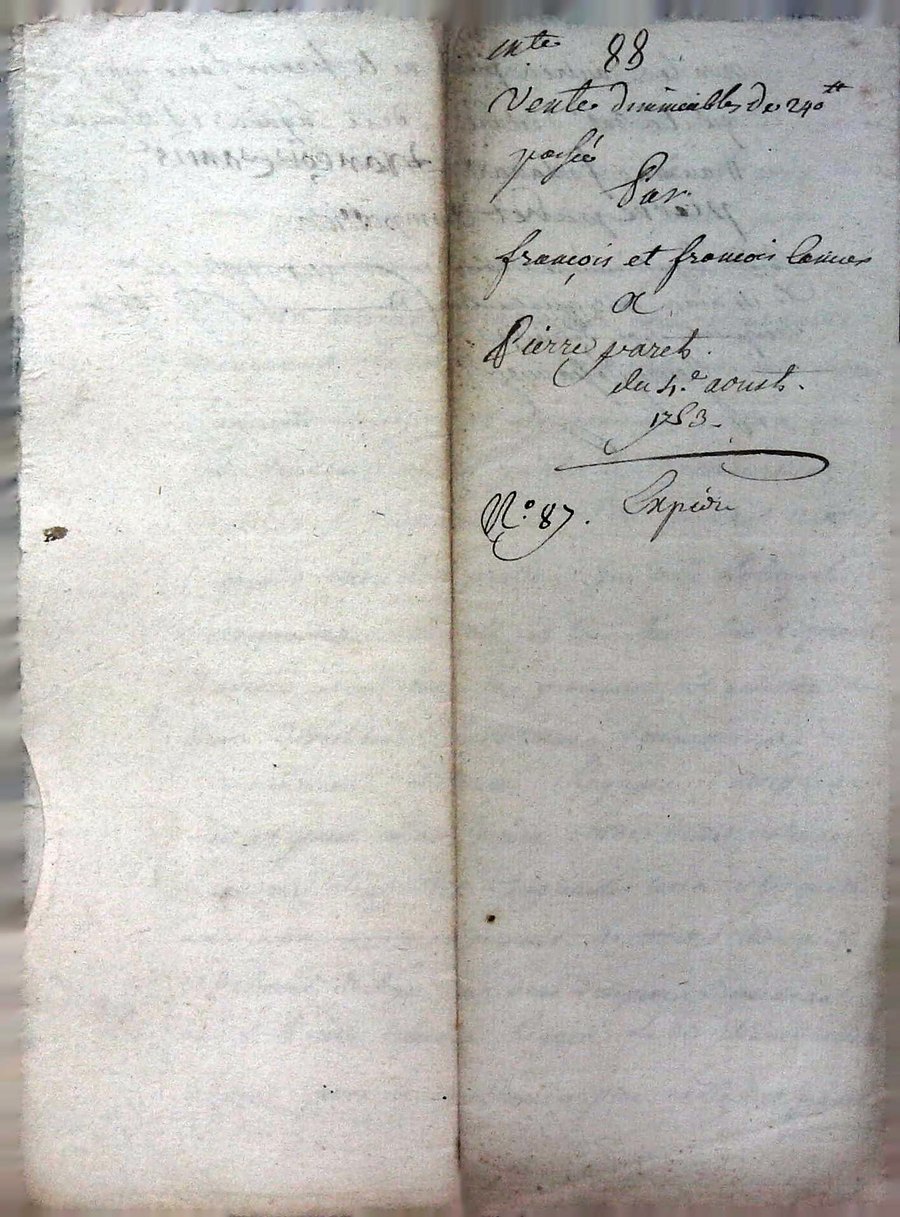 ente 88
Vente dimmeubles de 240 ₶
passée
Par
françois et francois
a
Pierre paret.
du 4.e aoust.
1753.
N.o 87. Expedié